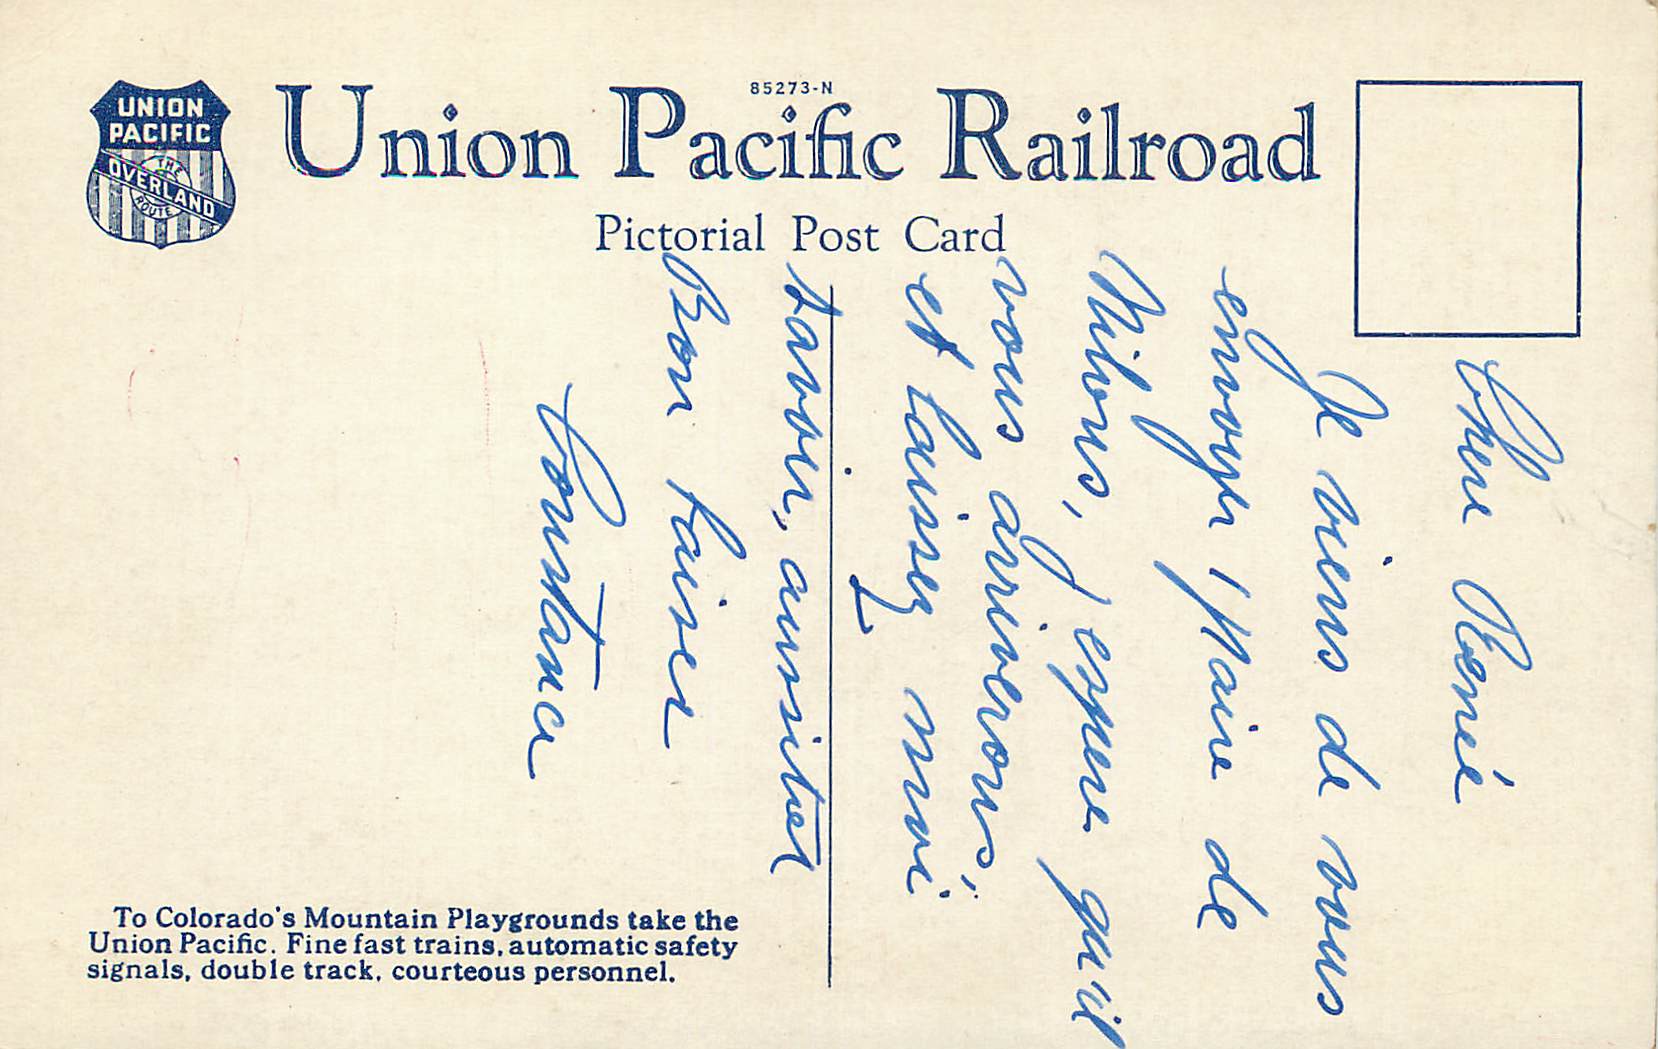 85273-N
UNION
PACIFIC
THE
OVERLAND
ROUTE
Union Pacific Railroad
Pictorial Post Card
Chere Renée
Je viens de vous
envoyer 1 paire de
Milons, j'espere qu'il
vous arriverons,
et laissez moi
savoir, aussitot
Bon Baiser
Constance
To Colorado's Mountain Playgrounds take the
Union Pacific. Fine fast trains, automatic safety
signals, double track, courteous personnel.